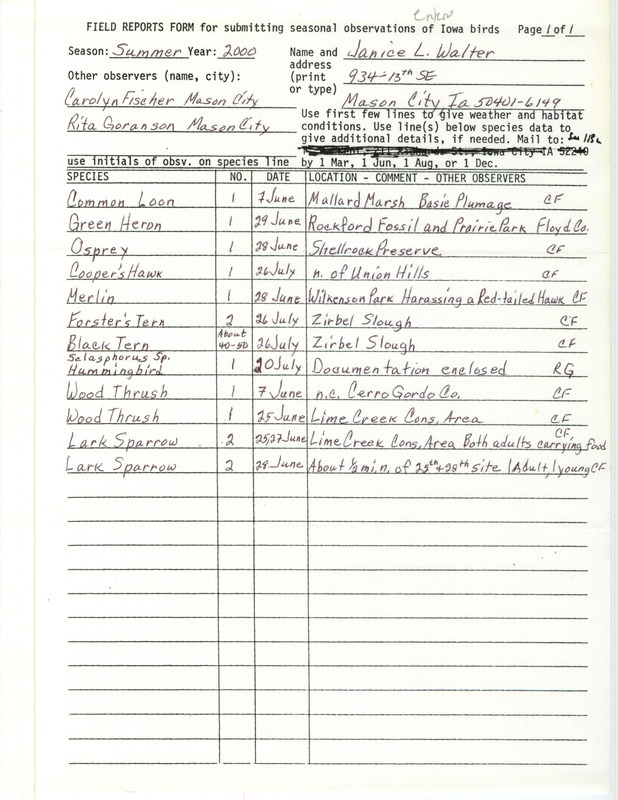 enter
FIELD REPORTS FORM for submitting seasonal observations of Iowa birds Page 1 of 1
Season: Summer Year: 2000
Name and address (print or type) Janice L. Walter
934-13th SE
Mason City Ia 50401-6149
Other observers (name, city):
Carolyn Fischer Mason City
Rita Goranson Mason City
Use first few lines to give weather and habitat
conditions. Use line(s) below species data to
give additional details, if needed. Mail to:
Iowa City IA 52240
use initials of obsv. on species line by 1 Mar, 1 Jun, 1 Aug, or 1 Dec.
SPECIES NO. DATE LOCATION - COMMENT - OTHER OBSERVERS
Common Loon 1 7 June Mallard Marsh Basic Plumage CF
Green Heron 1 29 June Rockford Fossil and Prairie Park Floyd Co.
Osprey 1 28 June Shellrock Preserve CF
Cooper's Hawk 1 26 July n. of Union Hills CF
Merlin 1 28 June Wilkenson Park Harassing a Red-tailed Hawk CF
Forster's Tern 2 26 July Zirbel Slough CF
Black Tern About 40-50 26 July Zirbel Slough CF
Selasphorus Sp.
Hummingbird 1 20 July Documentation enclosed RG
Wood Thrush 1 7 June n.c. Cerro Gordo Co. CF
Wood Thrush 1 25 June Lime Creek Cons. Area CF
Lark Sparrow 2 25,27 June Lime Creek Cons. Area Both adults carrying food CF
Lark Sparrow 2 28 June About 1/2 mi n. of 25th + 28th site 1 Adult, 1 young CF